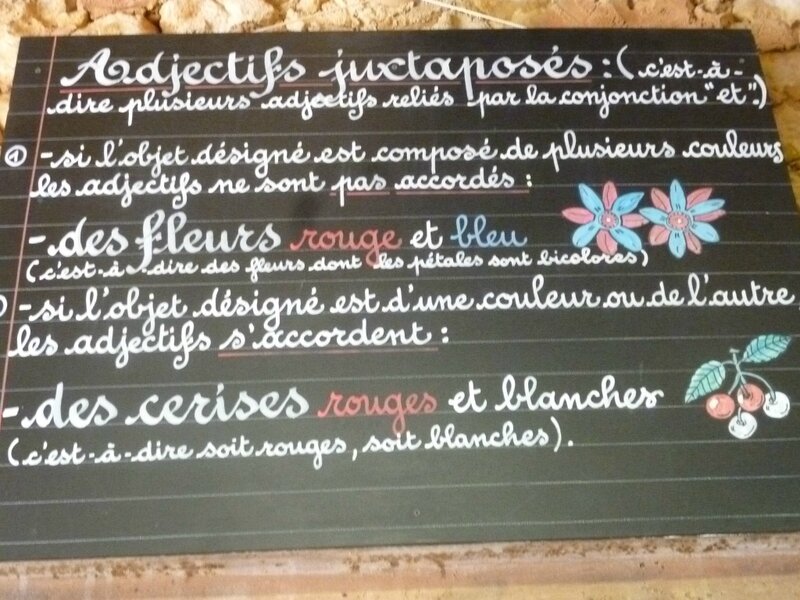 Adjectifs juxtaposés : (c'est-à-
dire plusieurs adjectifs reliés par la conjonction "et".)
① -si l'objet désigné est composé de plusieurs couleurs
les adjectifs ne sont pas accordés :
- des fleurs rouge et bleu
(c'est-à-dire des fleurs dont les pétales sont bicolores)
-si l'objet désigné est d'une couleur ou de l'autre
les adjectifs s'accordent :
- des cerises rouges et blanches
(c'est-à-dire soit rouges, soit blanches).